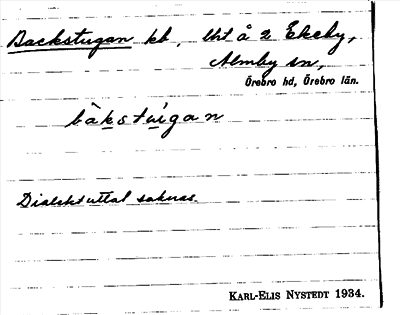 Backstugan kb, Urt å 2 Ekeby,
Almby sn,
Örebro hd, Örebro län.
bàkstúgan
Dialektuttal saknas.
KARL-ELIS NYSTEDT 1934.